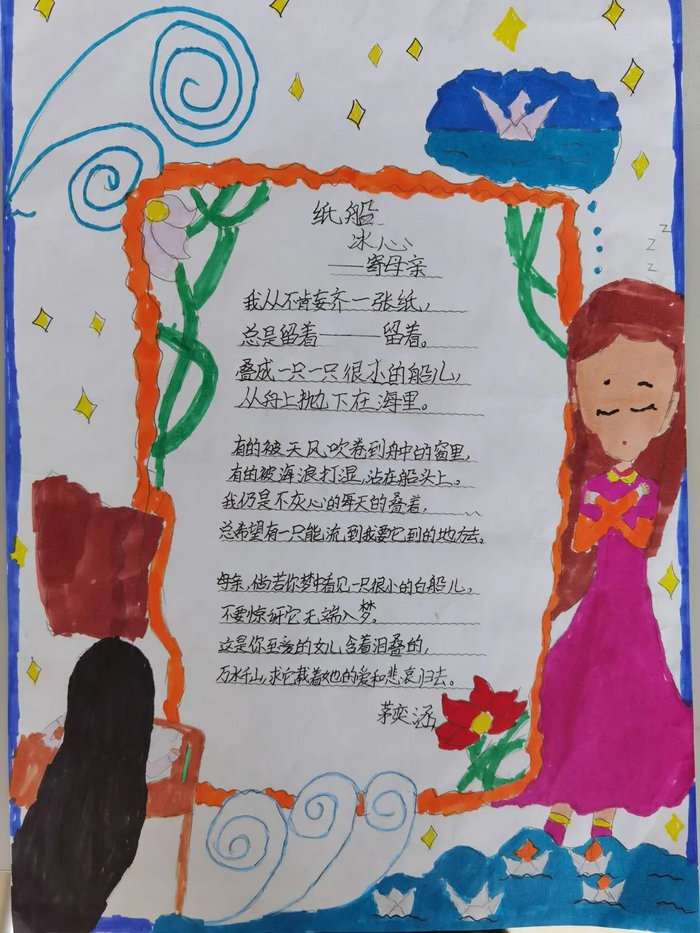 纸船
冰心
——寄母亲
我从不肯妄弃一张纸，
总是留着——留着。
叠成一只一只很小的船儿，
从舟上抛下在海里。
有的被天风吹卷到舟中的窗里，
有的被海浪打湿，沾在船头上。
我仍是不灰心的每天的叠着，
总希望有一只能流到我要它到的地方去。
母亲，倘若你梦中看见一只很小的白船儿，
不要惊讶它无端入梦。
这是你至爱的女儿含着泪叠的，
万水千山，求它载着她的爱和悲哀归去。
茅奕涵
z
z
z